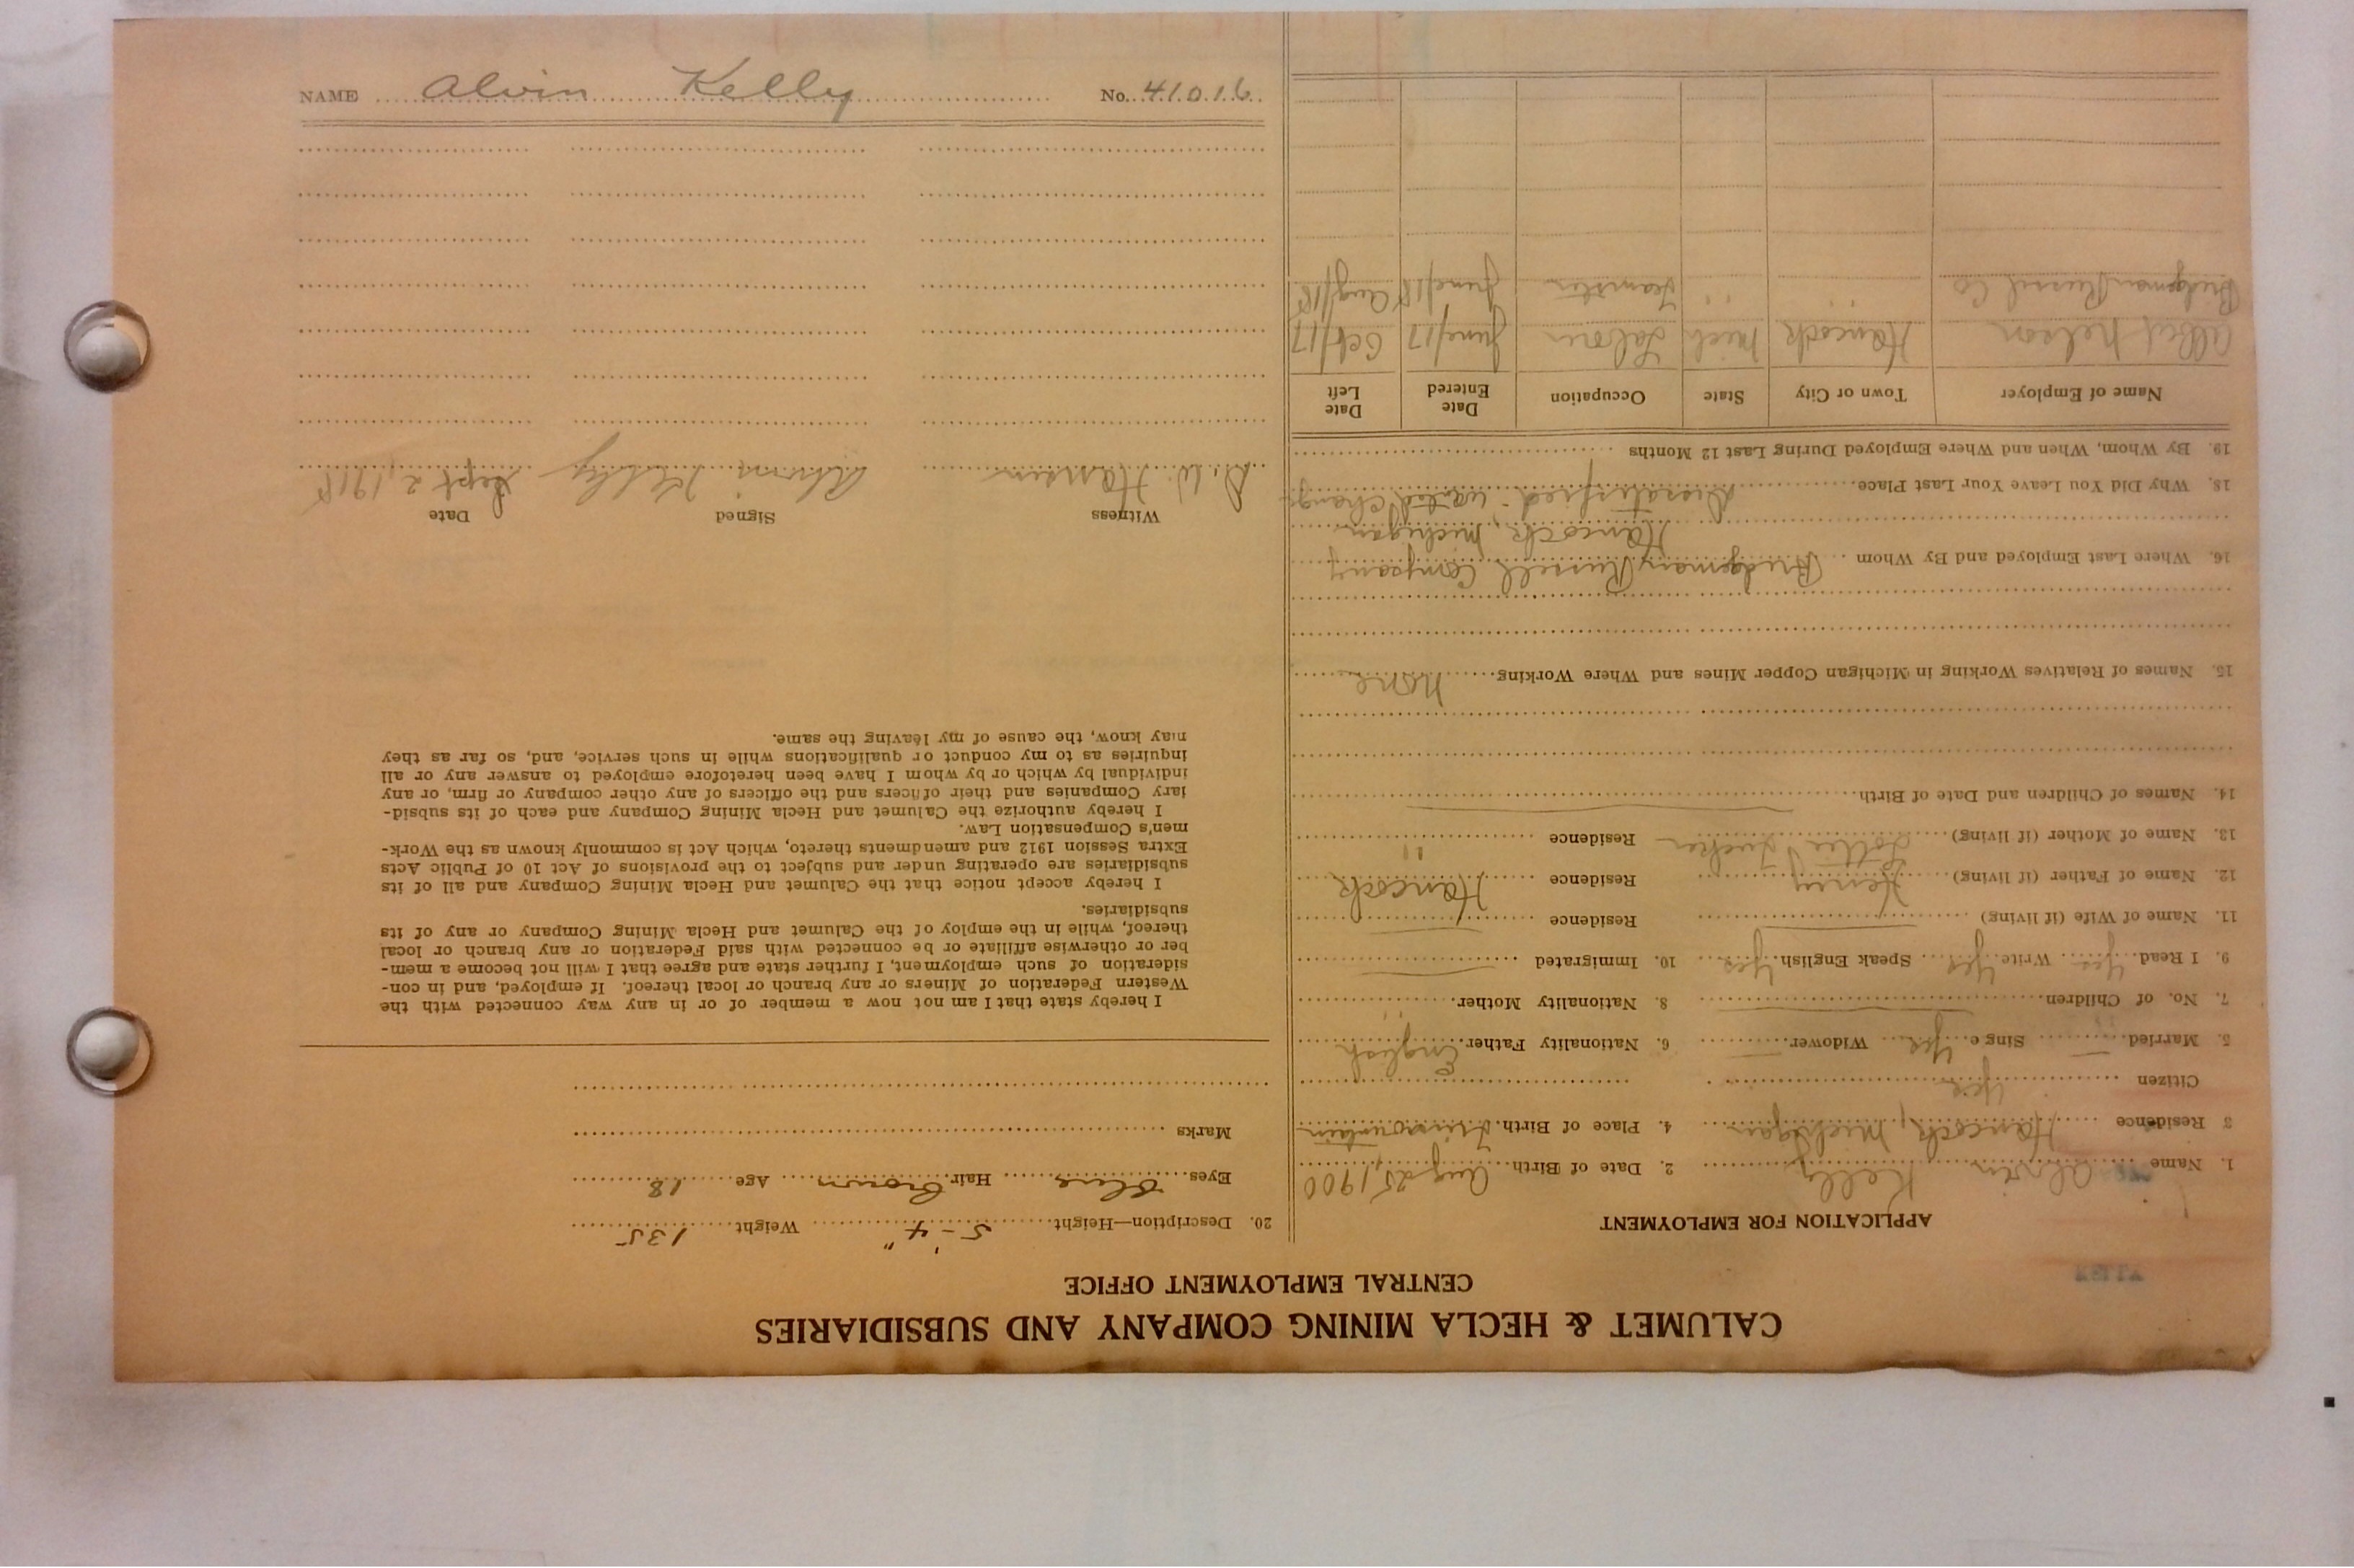 CALUMET & HECLA MINING COMPANY AND SUBSIDIARIES
CENTRAL EMPLOYMENT OFFICE
APPLICATION FOR EMPLOYMENT
1. Name Alvin Kelly 2. Date of Birth Aug 25, 1900
3 Residence Hancock, Michigan 4. Place of Birth Trimountain
Citizen Yes
5. Married Sing e Yes Widower 6. Nationality Father English
7. No. of Children 8. Nationality Mother "
9. I Read Yes Write Yes Speak English Yes 10. Immigrated
11. Name of Wife (if living) Residence
12. Name of Father (if living) Henry Residence Hancock
13. Name of Mother (if living) Lottie Tucker Residence "
14. Names of Children and Date of Birth
15. Names of Relatives Working in Michigan Copper Mines and Where Working None
16. Where Last Employed and By Whom Bridgeman Russell Company
Hancock, Michigan
18. Why Did You Leave Your Last Place Dissatisfied - wanted change
19. By Whom, When and Where Employed During Last 12 Months
Name of Employer Town or City State Occupation Date Entered Date Left
Albert Nelson Hancock Mich Labor June/17 Oct/17
Bridgeman Russel Co " " Teamster June/18 Aug/18
20. Description—Height 5'-4" Weight 135
Eyes Blue Hair Brown Age 18
Marks
I hereby state that I am not now a member of or in any way connected with the
Western Federation of Miners or any branch or local thereof. If employed, and in con-
sideration of such employment, I further state and agree that I will not become a mem-
ber or otherwise affiliate or be connected with said Federation or any branch or local
thereof, while in the employ of the Calumet and Hecla Mining Company or any of its
subsidiaries.
I hereby accept notice that the Calumet and Hecla Mining Company and all of its
subsidiaries are operating under and subject to the provisions of Act 10 of Public Acts
Extra Session 1912 and amendments thereto, which Act is commonly known as the Work-
men's Compensation Law.
I hereby authorize the Calumet and Hecla Mining Company and each of its subsid-
iary Companies and their officers and the officers of any other company or firm, or any
individual by which or by whom I have been heretofore employed to answer any or all
inquiries as to my conduct or qualifications while in such service, and, so far as they
may know, the cause of my leaving the same.
Witness Signed Date
W. Hansen Alvin Kelly Sept 2, 1918
NAME Alvin Kelly No. 41016